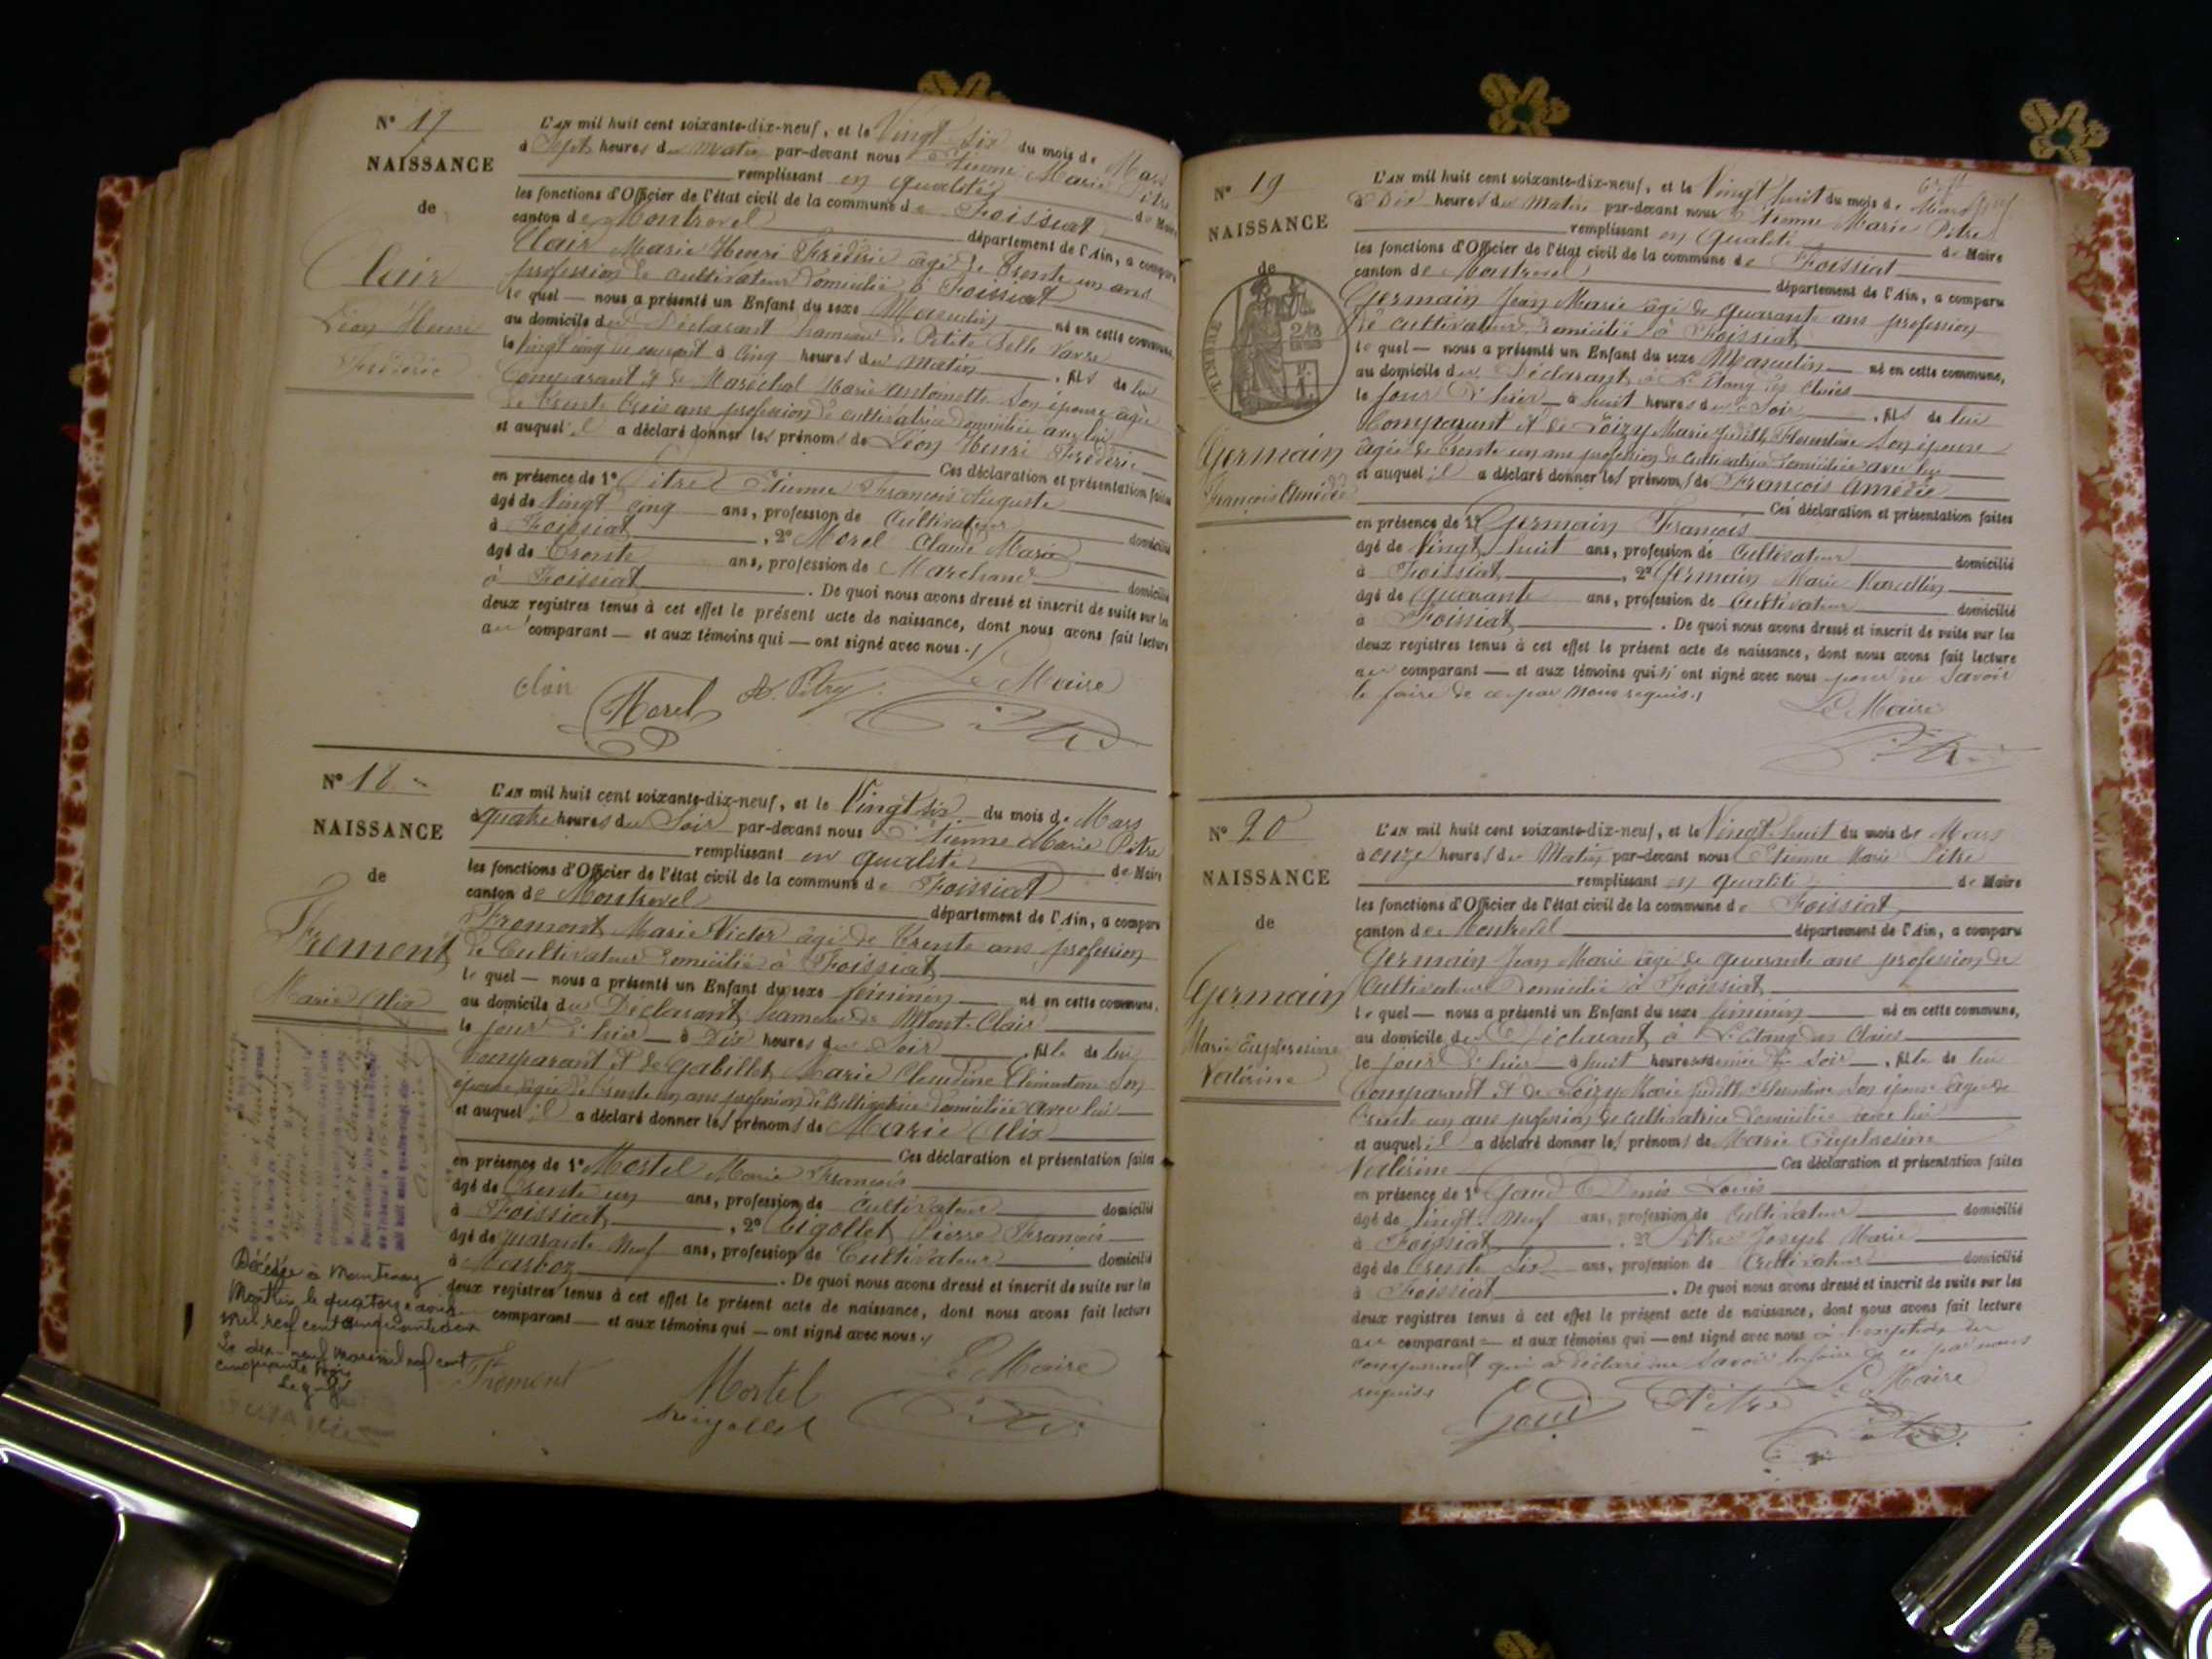 N° 17
NAISSANCE
de
Clair
Léon Henri
Frédéric
L'AN mil huit cent soixante-dix-neuf, et le Vingt six du mois de Mars
à Sept heures du matin par-devant nous Etienne Marie Pitre
remplissant en qualité de Maire
les fonctions d'Officier de l'état civil de la commune de Foissiat
canton de Montrevel département de l'Ain, a comparu
Clair Marie Henri Frédéric âgé de trente un ans
profession de cultivateur domicilié à Foissiat
lequel — nous a présenté un Enfant du sexe Masculin né en cette commune,
au domicile du Déclarant hameau de Petite Belle Varre
le Vingt cinq du courant à Cinq heures du matin, fils de lui
Comparant et de Maréchal Marie Antoinette son épouse âgée
de trente trois ans profession de cultivatrice domiciliée avec lui
et auquel il a déclaré donner les prénoms de Léon Henri Frédéric
Ces déclaration et présentation faites
en présence de 1° Pitre Etienne François Auguste
âgé de Vingt cinq ans, profession de Cultivateur domicilié
à Foissiat, 2° Morel Claude Marie
âgé de trente ans, profession de Marchand domicilié
à Foissiat. De quoi nous avons dressé et inscrit de suite sur les
deux registres tenus à cet effet le présent acte de naissance, dont nous avons fait lecture
au comparant — et aux témoins qui — ont signé avec nous.
Clair Morel Le Maire
N° 18
NAISSANCE
de
Froment
Marie Alix
L'AN mil huit cent soixante-dix-neuf, et le Vingt six du mois de Mars
à quatre heures du Soir par-devant nous Etienne Marie Pitre
remplissant en qualité de Maire
les fonctions d'Officier de l'état civil de la commune de Foissiat
canton de Montrevel département de l'Ain, a comparu
Froment Marie Victor âgé de trente ans profession
de Cultivateur domicilié à Foissiat
lequel — nous a présenté un Enfant du sexe féminin né en cette commune,
au domicile du Déclarant hameau de Mont-Clair
le jour d'hier à Dix heures du Soir, fille de lui
Comparant et de Gabillet Marie Claudine Clémentine son
épouse âgée de trente un ans profession de Cultivatrice domiciliée avec lui
et auquel il a déclaré donner les prénoms de Marie Alix
Ces déclaration et présentation faites
en présence de 1° Mortel Marie François
âgé de trente un ans, profession de cultivateur domicilié
à Foissiat, 2° Pierre François
âgé de quarante neuf ans, profession de Cultivateur domicilié
à Marboz. De quoi nous avons dressé et inscrit de suite sur les
deux registres tenus à cet effet le présent acte de naissance, dont nous avons fait lecture
au comparant — et aux témoins qui — ont signé avec nous
Décédée à Mantenay
Montlin le quatorze avril
mil neuf cent cinquante deux
Le dix-neuf mars mil neuf cent
cinquante trois
Froment Mortel Le Maire
N° 19
NAISSANCE
de
TIMBRE
Germain
François Amédée
L'AN mil huit cent soixante-dix-neuf, et le Vingt huit du mois de Mars
à Dix heures du Matin par-devant nous Etienne Marie Pitre
remplissant en qualité de Maire
les fonctions d'Officier de l'état civil de la commune de Foissiat
canton de Montrevel département de l'Ain, a comparu
Germain Jean Marie âgé de quarante ans profession
de cultivateur domicilié à Foissiat
lequel — nous a présenté un Enfant du sexe Masculin né en cette commune,
au domicile du Déclarant à L'Etang des Claies
le jour d'hier à huit heures du Soir, fils de lui
Comparant et de Loizy Marie Judith Florentine son épouse
âgée de trente un ans profession de cultivatrice domiciliée avec lui
et auquel il a déclaré donner les prénoms de François Amédée
Ces déclaration et présentation faites
en présence de 1° Germain François
âgé de Vingt huit ans, profession de Cultivateur domicilié
à Foissiat, 2° Germain Marie Marcellin
âgé de Quarante ans, profession de Cultivateur domicilié
à Foissiat. De quoi nous avons dressé et inscrit de suite sur les
deux registres tenus à cet effet le présent acte de naissance, dont nous avons fait lecture
au comparant — et aux témoins qui n'ont signé avec nous pour ne savoir
le faire de ce par nous requis.
Le Maire
N° 20
NAISSANCE
de
Germain
Marie Euphrosine
Valérine
L'AN mil huit cent soixante-dix-neuf, et le Vingt huit du mois de Mars
à onze heures du Matin par-devant nous Etienne Marie Pitre
remplissant en qualité de Maire
les fonctions d'Officier de l'état civil de la commune de Foissiat
canton de Montrevel département de l'Ain, a comparu
Germain Jean Marie âgé de quarante ans profession de
Cultivateur domicilié à Foissiat
lequel — nous a présenté un Enfant du sexe féminin né en cette commune,
au domicile du Déclarant à L'Etang des Claies
le jour d'hier à huit heures demie du soir, fille de lui
Comparant et de Loizy Marie Judith Florentine son épouse âgée de
trente un ans profession de cultivatrice domiciliée avec lui
et auquel il a déclaré donner les prénoms de Marie Euphrosine
Valérine Ces déclaration et présentation faites
en présence de 1° Gaud Denis Louis
âgé de Vingt Neuf ans, profession de Cultivateur domicilié
à Foissiat, 2° Pitre Joseph Marie
âgé de trente six ans, profession de Cultivateur domicilié
à Foissiat. De quoi nous avons dressé et inscrit de suite sur les
deux registres tenus à cet effet le présent acte de naissance, dont nous avons fait lecture
au comparant — et aux témoins qui — ont signé avec nous à l'exception du
comparant qui a déclaré ne savoir le faire de ce par nous
requis
Gaud Pitre Le Maire